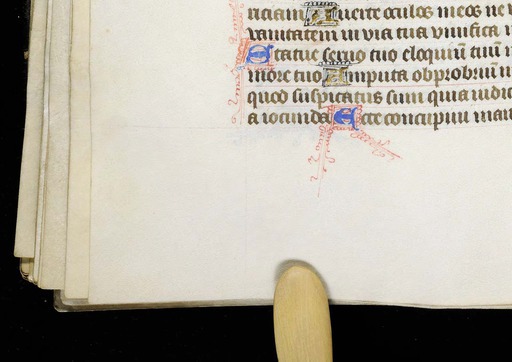 iciam Auerte oculos meos ne u
vanitatem in via tua vivifica m
Statue seruo tuo eloquiū tuū i
more tuo Amputa obprobriū m
quod suspicatus sum quia iudic
a iocunda Ecce concupiui man